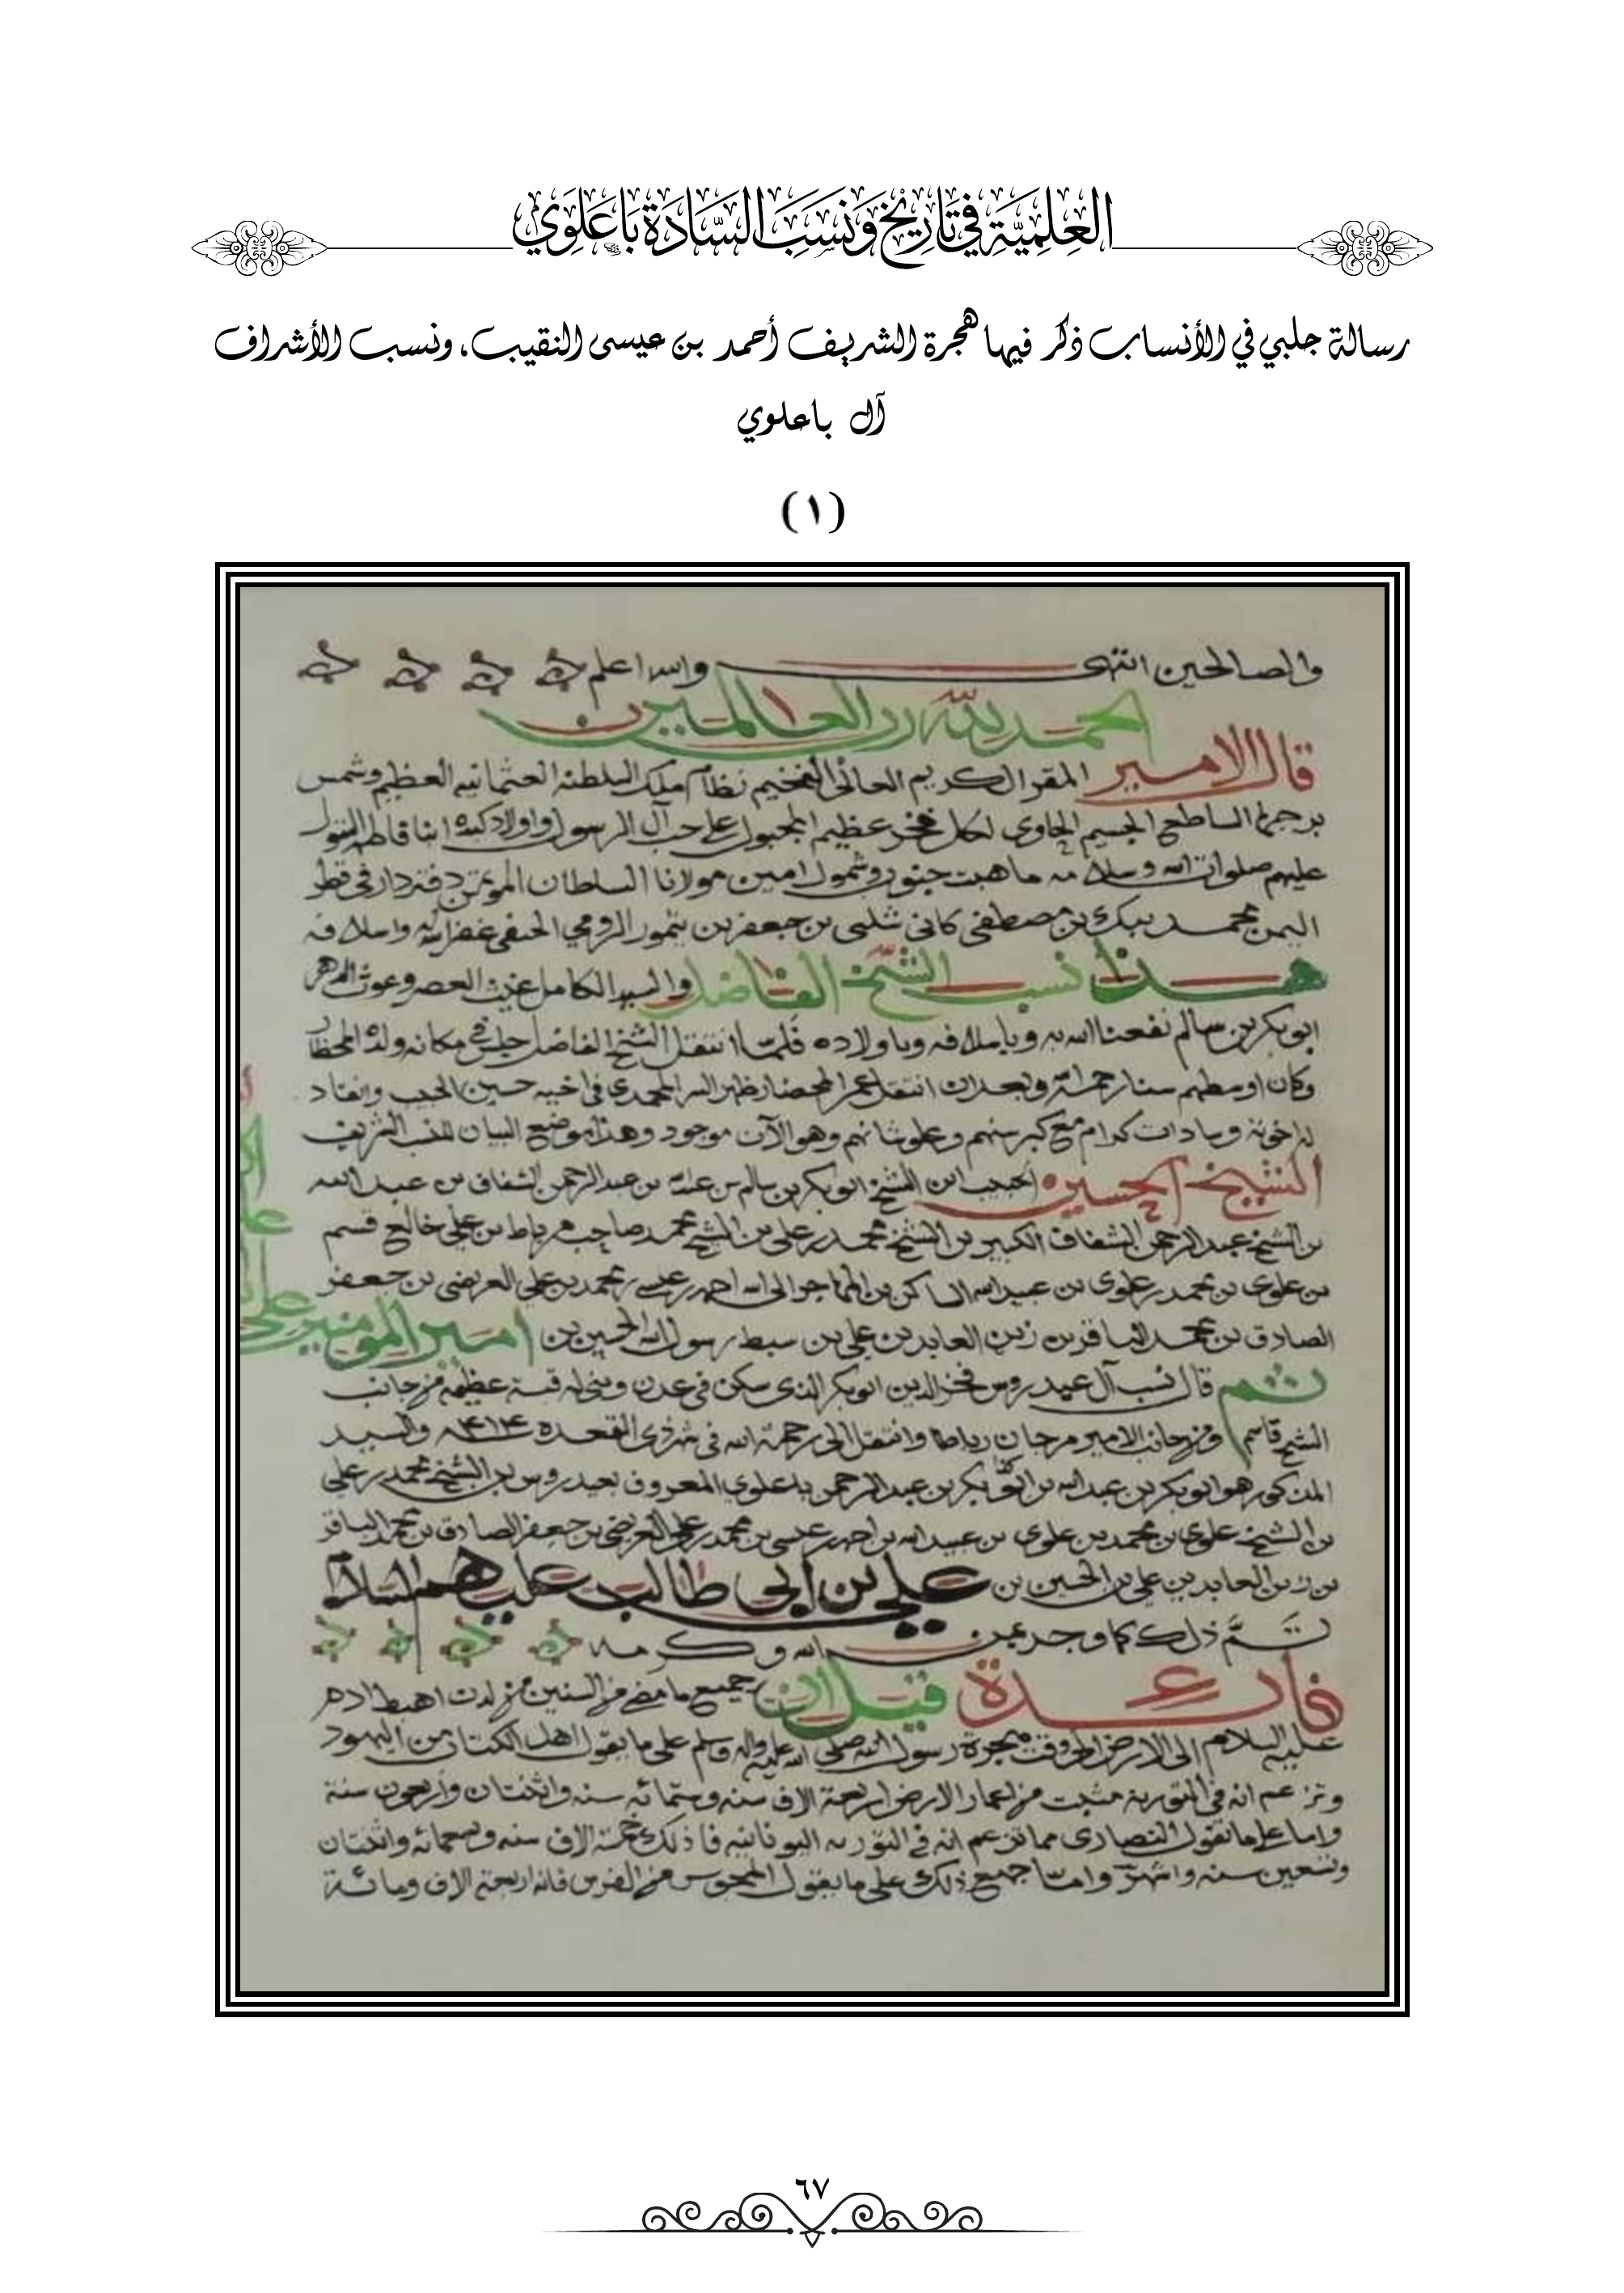 العِلمِيَّة في تَارِيخ وَنَسَبِ السَّادَة بَاعَلَوِي
رسالة جلبي في الأنساب ذكر فيها هجرة الشريف أحمد بن عيسى النقيب، ونسب الأشراف
آل باعلوي
(١)
والصالحين انتهى والله اعلم
الحمد لله رب العالمين
قال الامير المقر الكريم العالى الفخيم نظام ملك السلطنه العثمانيه العظيم وشمس
الساطع الجسيم الحاوى لكل فخر عظيم المجبول على حب آل الرسول واولاد
عليهم صلوات الله وسلامه ما هبت جنوب وشمول امين مولانا السلطان المؤتمن دفتردار فى قطر
اليمن محمد بيك بن مصطفى كانى شلبى بن جعفر بن تيمور الرومي الحنفى غفر الله له واسلافه
هذا نسب الشيخ الفاضل والسيد الكامل غيث العصر وغوث الدهر
ابو بكر بن سالم نفعنا الله به وباسلافه وباولاده فلمّا انتقل الشيخ الفاضل جلس فى مكانه ولده المحضار
وكان اوسطهم سنا رحمه الله وبعد ان انتقل عمر المحضار ظهر السر المحمدى فى اخيه حسين الحبيب وانقاد
له اخوته وسادات كرام مع كبر سنهم وعلو شانهم وهو الآن موجود وهذا موضع البيان للنسب الشريف
الشيخ الحسين الحبيب ابن الشيخ ابو بكر بن سالم بن عبد الله بن عبد الرحمن الشقاف بن عبد الله
بن الشيخ عبد الرحمن الشقاف الكبير بن الشيخ محمد بن على بن الشيخ محمد صاحب مرباط بن على خالع قسم
بن علوى بن محمد بن علوى بن عبيد الله الساكن بن المهاجر الى الله احمد بن عيسى بن محمد بن علي العريضى بن جعفر
الصادق بن محمد الباقر بن زين العابدين بن على بن سبط رسول الله الحسين بن امير المومنين على
ثم قال نسب آل عيدروس فخر الدين ابو بكر الذى سكن فى عدن وبنى له قبة عظيمه من جانب
الشيخ قاسم ومن جانب الامير مرجان رباطا وانتقل الى رحمة الله فى شهر ذى القعده سنة ٩١٤ والسيد
المذكور هو ابو بكر بن عبد الله بن ابو بكر بن عبد الرحمن باعلوي المعروف بعيدروس بن الشيخ محمد بن على
بن الشيخ علوى بن محمد بن علوى بن عبيد الله بن احمد بن عيسى بن محمد بن على العريضى بن جعفر الصادق بن محمد الباقر
بن زين العابدين على بن الحسين بن على بن ابى طالب عليهم السلام
تمَّ ذلك كما وجد بمن الله وكرمه
فائدة قيل ان جميع ما مضى من السنين من لدن اهبط ادم
عليه السلام الى الارض الى وقت هجرة رسول الله صلى الله عليه واله وسلم على ما يقول اهل الكتاب من اليهود
وتزعم انه فى التورية مثبت من اعمار الارض اربعة الاف سنه وستمائه سنه واثنتان واربعون سنة
واما على ما تقول النصارى مما تزعم انه فى التوريه اليونانيه فا ذلك خمسة الاف سنه وتسعمائه واثنتان
وتسعين سنه واشهر واما جميع ذلك على ما يقول المجوس من الفرس فانه اربعة الاف ومائة
٦٧